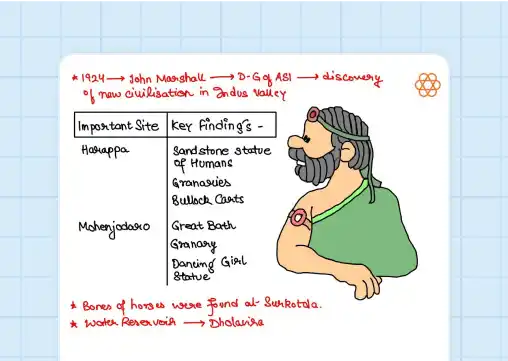 * 1924 → John Marshall → D-G of ASI → discovery
of new civilisation in Indus Valley
Important Site Key Findings -
Harappa Sandstone statue
of Humans
Granaries
Bullock Carts
Mohenjodaro Great Bath
Granary
Dancing Girl
Statue
* Bones of horses were found at Surkotda.
* Water Reservoir → Dholavira